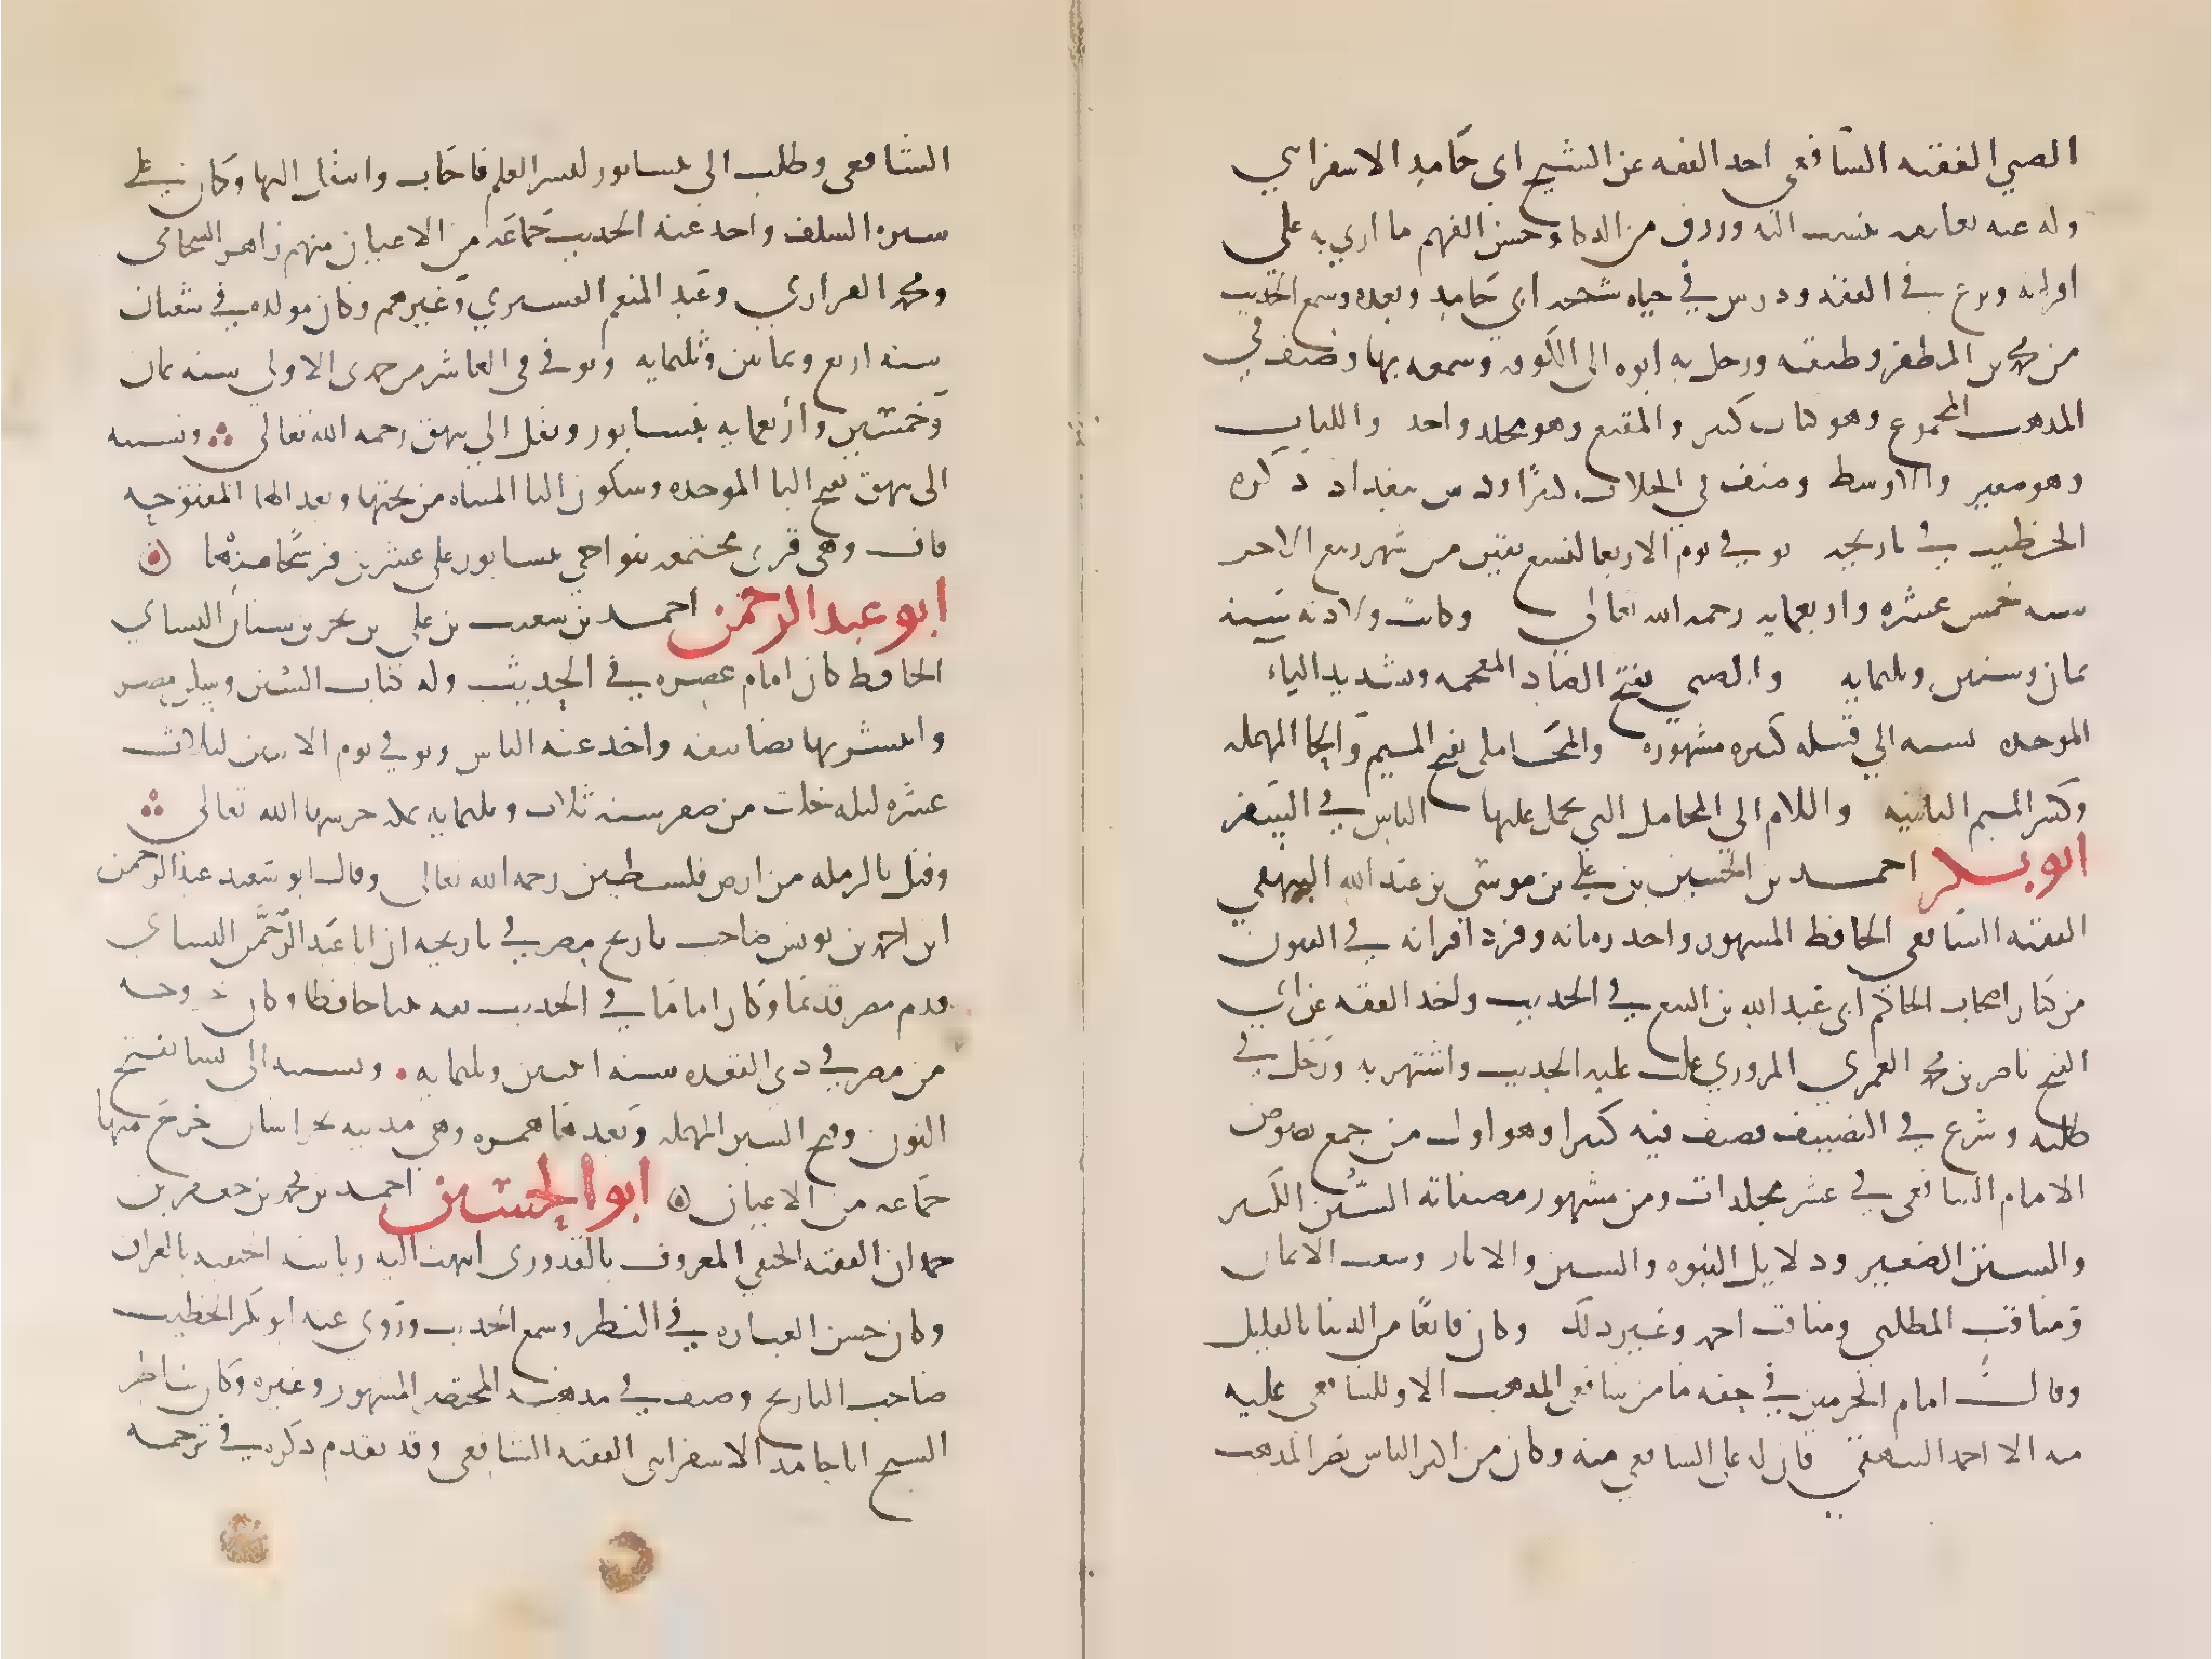 الضبي الفقيه الشافعي اخذ الفقه عن الشيخ ابي حامد الاسفرايني
وله عنه تعليقه تنسب اليه ورزق من الذكا وحسن الفهم ما اربي به علي
اقرانه وبرع في الفقه ودرس في حياه شيخه ابي حامد وبعده وسمع الحديث
من محمد بن المظفر وطبقته ورحل به ابوه الى الكوفه وسمعه بها وصنف في
المذهب المجموع وهو كتاب كبير والمقنع وهو مجلد واحد واللباب
وهو صغير والاوسط وصنف في الخلاف كثيرًا ودرس ببغداد ذكره
الخطيب في تاريخه توفي في يوم الاربعا لتسع بقين من شهر ربيع الاخر
سنه خمس عشره واربعمايه رحمه الله تعالي وكانت ولادته سنة
ثمان وستين وثلثمايه والضبي بفتح الضاد المعجمه وتشديد الباء
الموحده نسبه الي قبيله كبيره مشهوره والمحاملي بفتح الميم والحا المهمله
وكسر الميم الثانيه واللام الي المحامل التي يحمل عليها الناس في السفر
ابو بكر احمد بن الحسين بن علي بن موسى بن عبد الله البيهقي
الفقيه الشافعي الحافظ المشهور واحد زمانه وفرد اقرانه في الفنون
من كبار اصحاب الحاكم ابي عبد الله بن البيع في الحديث واخذ الفقه عن ابي
الفتح ناصر بن محمد العمري المروزي غلب عليه الحديث واشتهر به ورحل في
طلبه وشرع في التصنيف فصنف فيه كثيرا وهو اول من جمع نصوص
الامام الشافعي في عشر مجلدات ومن مشهور مصنفاته السُّنن الكبير
والسنن الصغير ودلايل النبوه والسنن والاثار وشعب الايمان
ومناقب المطلبي ومناقب احمد وغير ذلك وكان قانعًا من الدنيا بالقليل
وقال امام الحرمين في حقه ما من شافعي المذهب الا وللشافعي عليه
منه الا احمد البيهقي فان له علي الشافعي منه وكان من اكثر الناس نصر المذهب
الشافعي وطلب الي نيسابور لنشر العلم فاجاب وانتقل اليها وكان علي
سيره السلف واخذ عنه الحديث جماعه من الاعيان منهم زاهر الشحامي
ومحمد الفراوي وعبد المنعم القشيري وغيرهم وكان مولده في شعبان
سنه اربع وثمانين وثلثمايه وتوفي في العاشر من جمدى الاولي سنه ثمان
وخمسين واربعمايه بنيسابور ونقل الي بيهق رحمه الله تعالي ونسبته
الى بيهق بفتح البا الموحده وسكون اليا المثناه من تحتها وبعد الها المفتوحه
قاف وهي قرى مجتمعه بنواحي نيسابور علي عشرين فرسخًا منها
ابو عبد الرحمن احمد بن شعيب بن علي بن بحر بن سنان النساي
الحافظ كان امام عصره في الحديث وله كتاب السنن وسكن مصر
وانتشر بها تصانيفه واخذ عنه الناس وتوفي يوم الاثنين لثلاث
عشره ليله خلت من صفر سنه ثلاث وثلثمايه بمكه حرسها الله تعالي
وقيل بالرمله من ارض فلسطين رحمه الله تعالي وقال ابو سعيد عبد الرحمن
ابن احمد بن يونس صاحب تاريخ مصر في تاريخه ان ابا عبد الرَّحْمن النساي
قدم مصر قديمًا وكان امامًا في الحديث ثقه ثبتا حافظا وكان خروجه
من مصر في ذي القعده سنه اثنتين وثلثمايه ونسبه الي نسا بفتح
النون وفتح السين المهمله وبعدها همزه وهي مدينه بخراسان خرج منها
جماعه من الاعيان ابو الحسين احمد بن محمد بن جعفر بن
حمدان الفقيه الحنفي المعروف بالقدوري انتهت اليه رياسة الحنفيه بالعراق
وكان حسن العباره في النظر وسمع الحديث وروى عنه ابو بكر الخطيب
صاحب التاريخ وصنف في مذهبه المختصر المشهور وغيره وكان يناظر
الشيخ ابا حامد الاسفرايني الفقيه الشافعي وقد تقدم ذكره في ترجمه